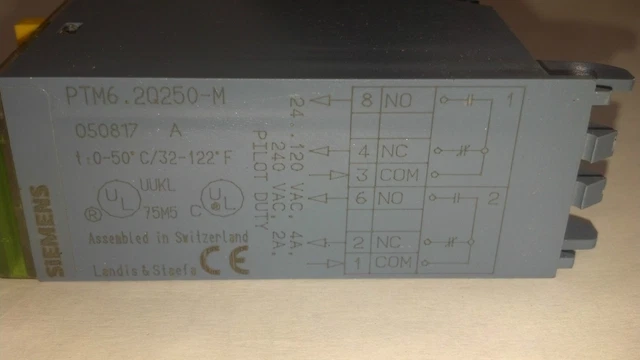 PTM6.2Q250-M
050817 A
t:0-50°C/32-122°F
UL UUKL
® 75M5 C UL ®
Assembled in Switzerland
Landis & Staefa CE
SIEMENS
24...120 VAC, 4A,
240 VAC, 2A,
PILOT DUTY
8 NO 1
4 NC
3 COM
6 NO 2
2 NC
1 COM